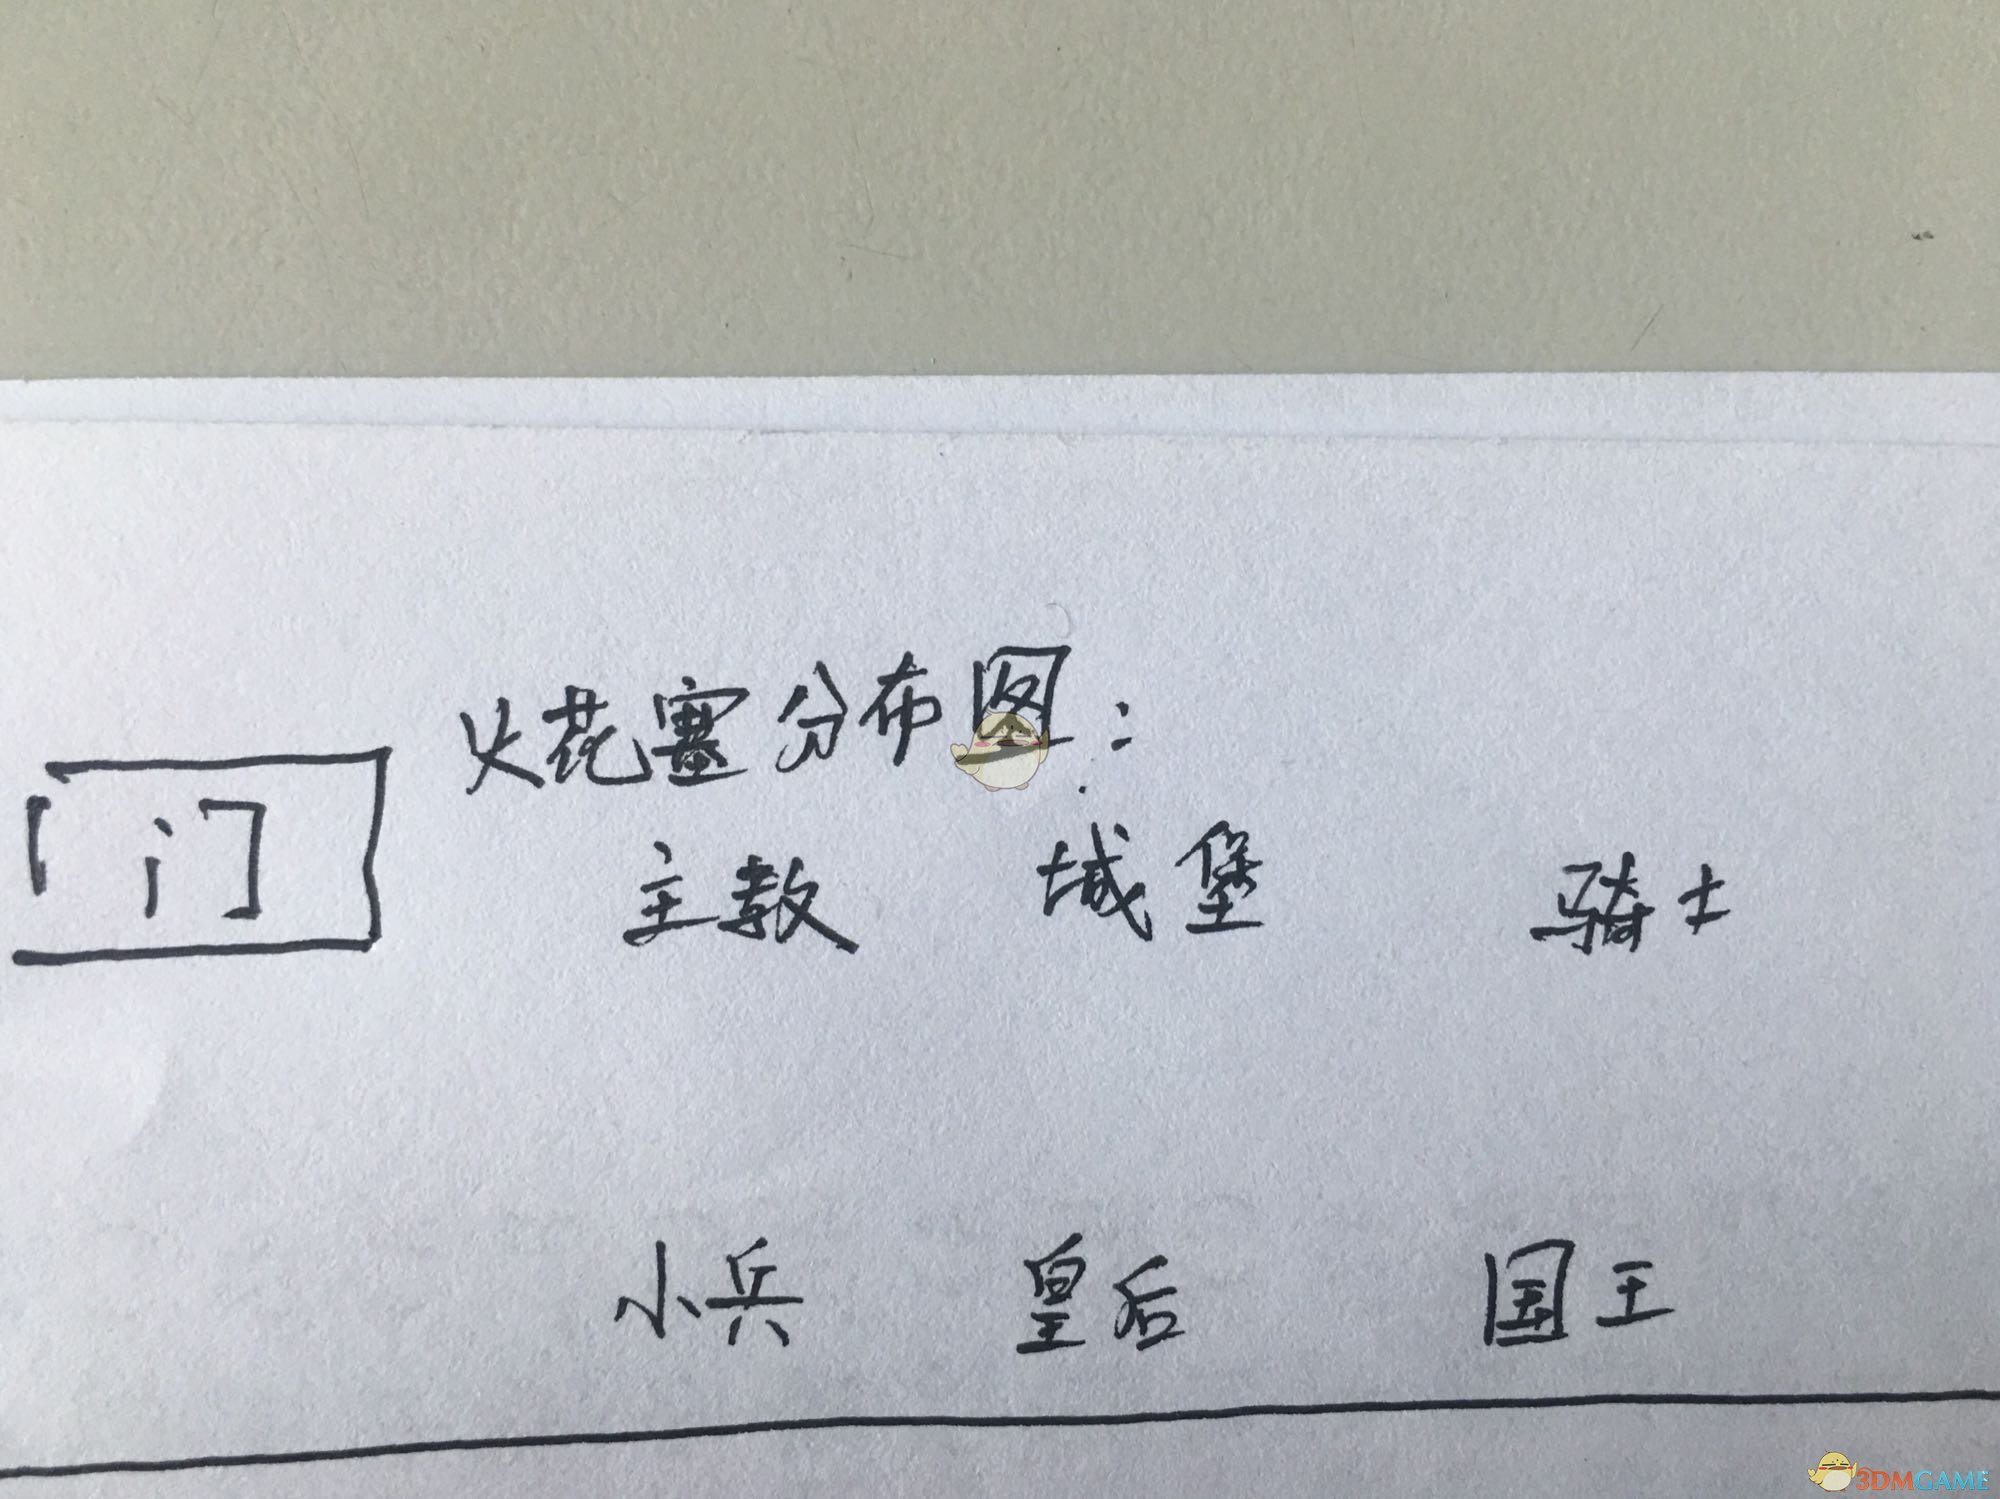 火花塞分布图：
门
主教 城堡 骑士
小兵 皇后 国王
3DMGAME